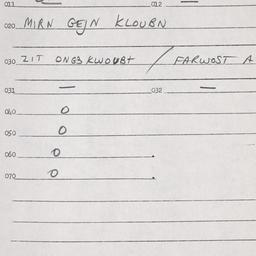 011 012
020 MIRN GEJN KLOUBN
030 ZIT ONGS KWOUBT / FARWOST A
031 — 032 —
040 O
050 O
060 O
070 O